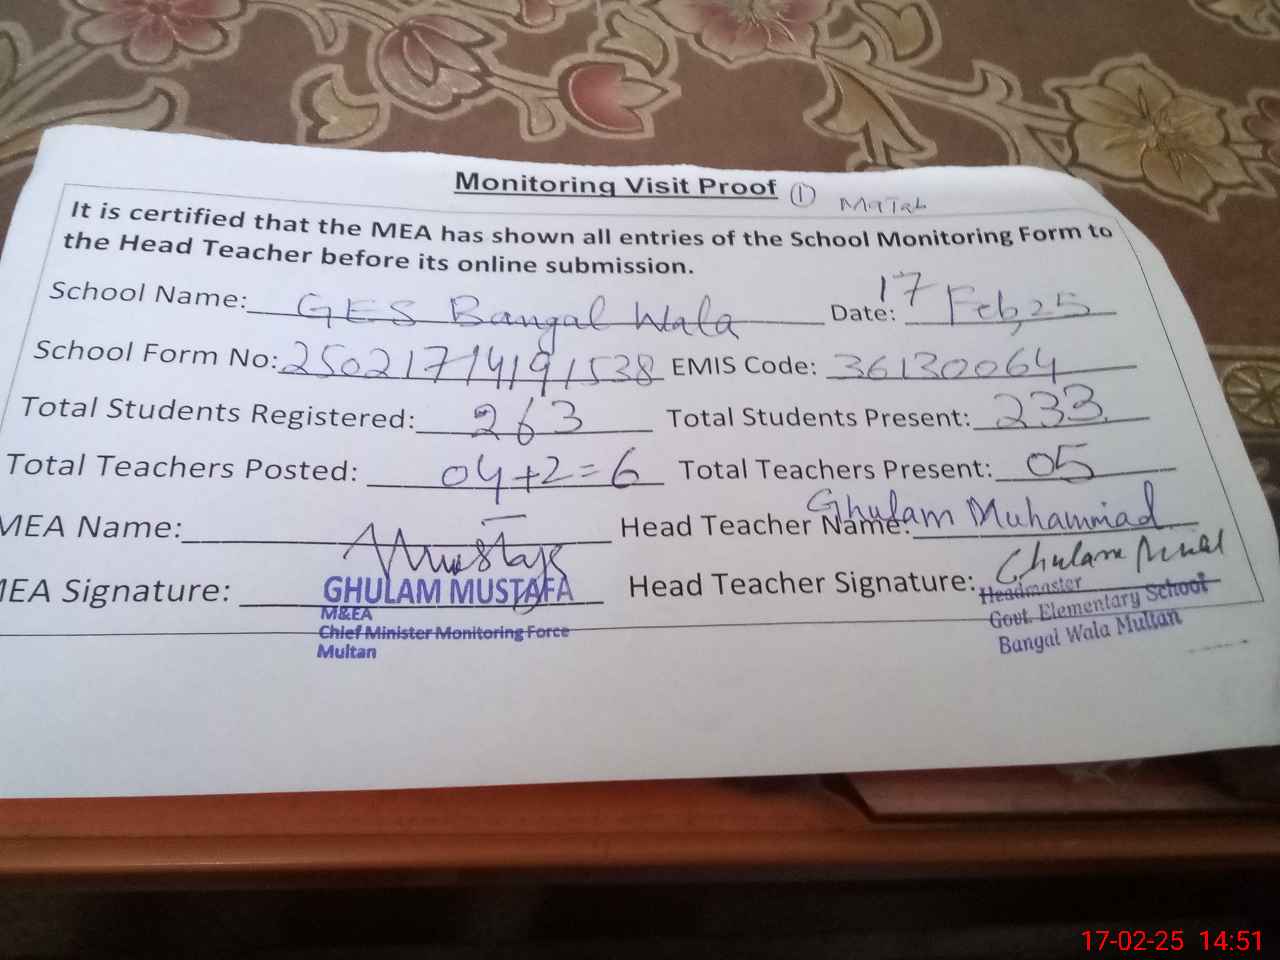 Monitoring Visit Proof 1
It is certified that the MEA has shown all entries of the School Monitoring Form to
the Head Teacher before its online submission.
School Name: GES Bangal Wala Date: 17 Feb, 25
School Form No: 25021714191538 EMIS Code: 36130064
Total Students Registered: 263 Total Students Present: 233
Total Teachers Posted: 04+2=6 Total Teachers Present: 05
MEA Name: Head Teacher Name: Ghulam Muhammad
MEA Signature: Head Teacher Signature:
GHULAM MUSTAFA
M&EA
Chief Minister Monitoring Force
Multan
Headmaster
Govt. Elementary School
Bangal Wala Multan
17-02-25 14:51